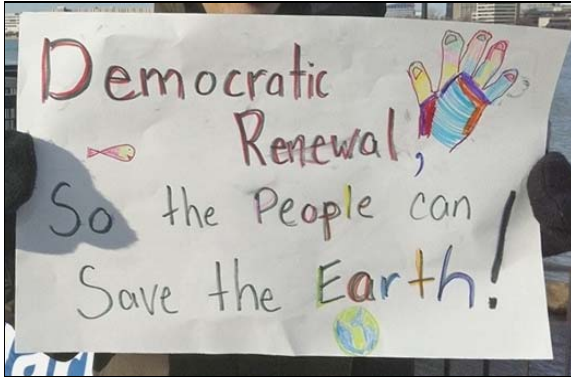 Democratic
Renewal,
So the People can
Save the Earth!